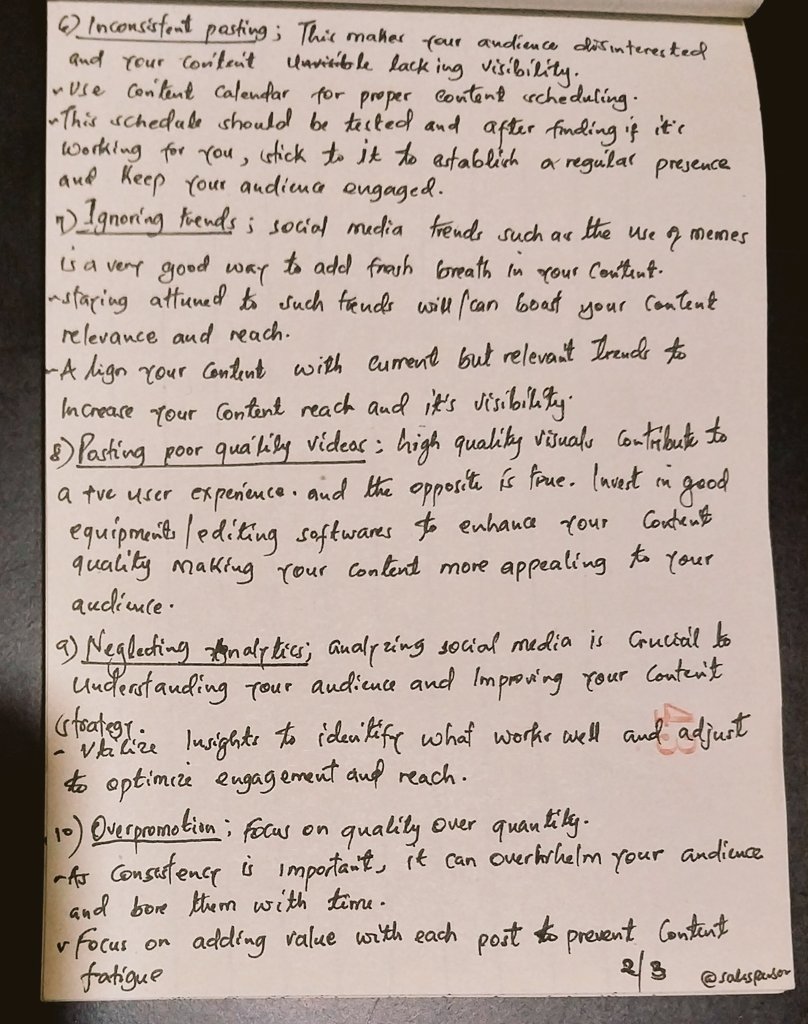 6) Inconsistent pasting; This makes your audience disinterested
and your content lacking visibility.
- Use Content Calendar for proper content scheduling.
- This schedule should be tested and after finding if it's
working for you, stick to it to establish a regular presence
and keep your audience engaged.
7) Ignoring trends; social media trends such as the use of memes
is a very good way to add fresh breath in your Content.
- staying attuned to such trends will/can boost your Content
relevance and reach.
- Align your Content with current but relevant Trends to
Increase your Content reach and it's visibility.
8) Pasting poor quality videos: high quality visuals Contribute to
a +ve user experience. and the opposite is true. Invest in good
equipments/editing softwares to enhance your Content
quality making your content more appealing to your
audience.
9) Neglecting Analytics; analyzing social media is Crucial to
Understanding your audience and Improving your Content
strategy.
- Utilize Insights to identify what works well and adjust
to optimize engagement and reach.
10) Overpromotion; Focus on quality over quantity.
- As Consistency is important, it can overwhelm your audience
and bore them with time.
- Focus on adding value with each post to prevent Content
fatigue
2/3